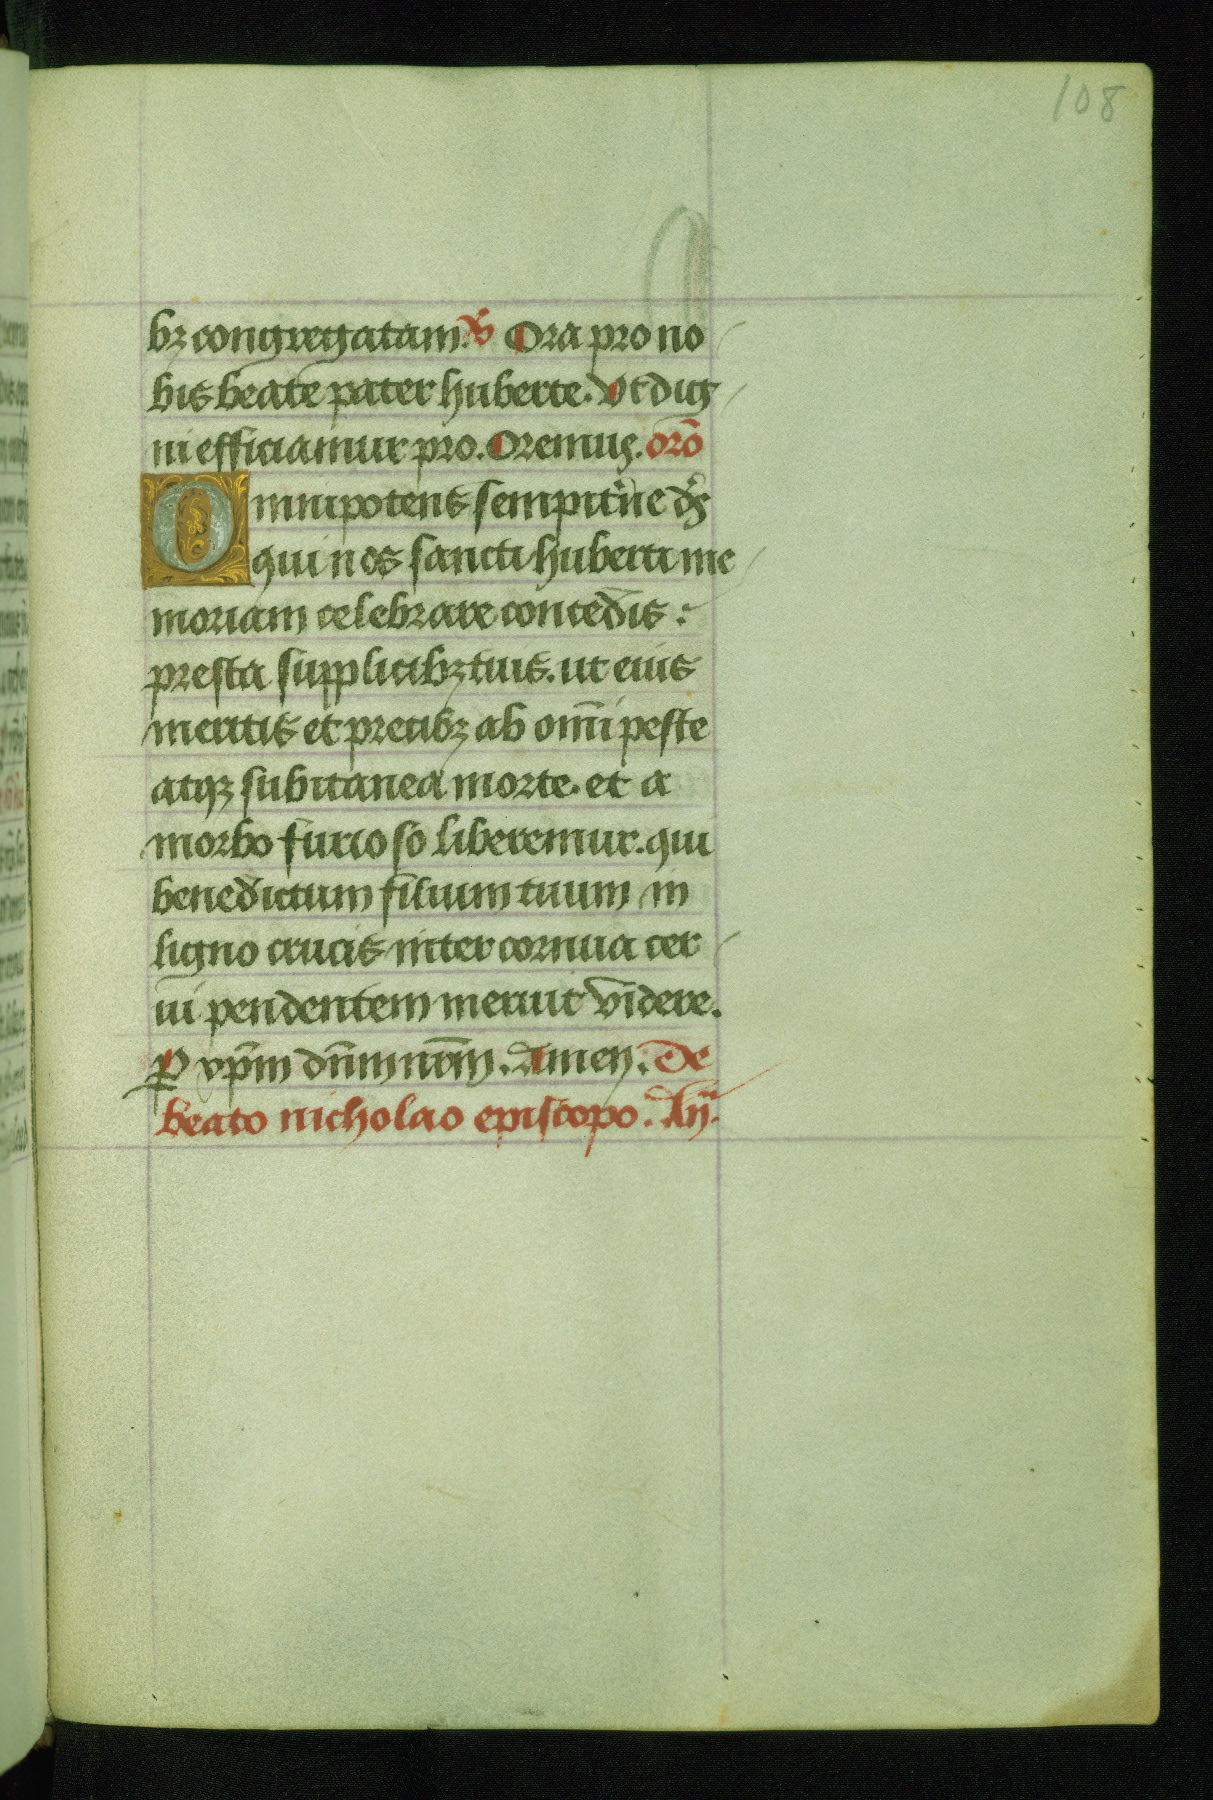 108
bꝫ congregatam. ℣ Ora pro no
bis beate pater huberte. Vt dig
ni efficiamur pro. Oremus. orō
Omnipotens sempitꝰne dꝰs
qui nos sancti huberti me
moriam celebrare concedis:
presta supplicibꝫ tuis. ut eius
meritis et precibꝫ ab om̄i peste
atqꝫ subitanea morte. et a
morbo furioso liberemur. qui
benedictum filium tuum in
ligno crucis inter cornua cer
ui pendentem meruit videre.
ꝑ xp̄m dn̄m nr̄m. Amen. De
beato nicholao episcopo. An̄.